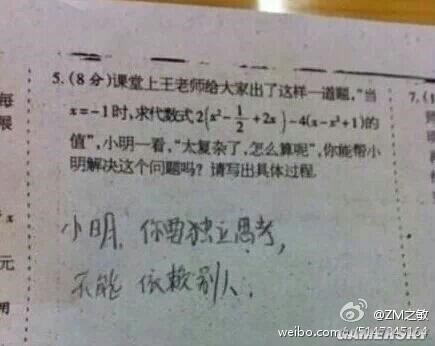 5.(8分)课堂上王老师给大家出了这样一道题,"当
x=-1时,求代数式2(x²-1/2+2x)-4(x-x²+1)的
值",小明一看,"太复杂了,怎么算呢",你能帮小
明解决这个问题吗?请写出具体过程.
小明,你要独立思考,
不能 依赖别人.
每
限
x
元
用
7.(1
@ZM之敏
GAMERSKY